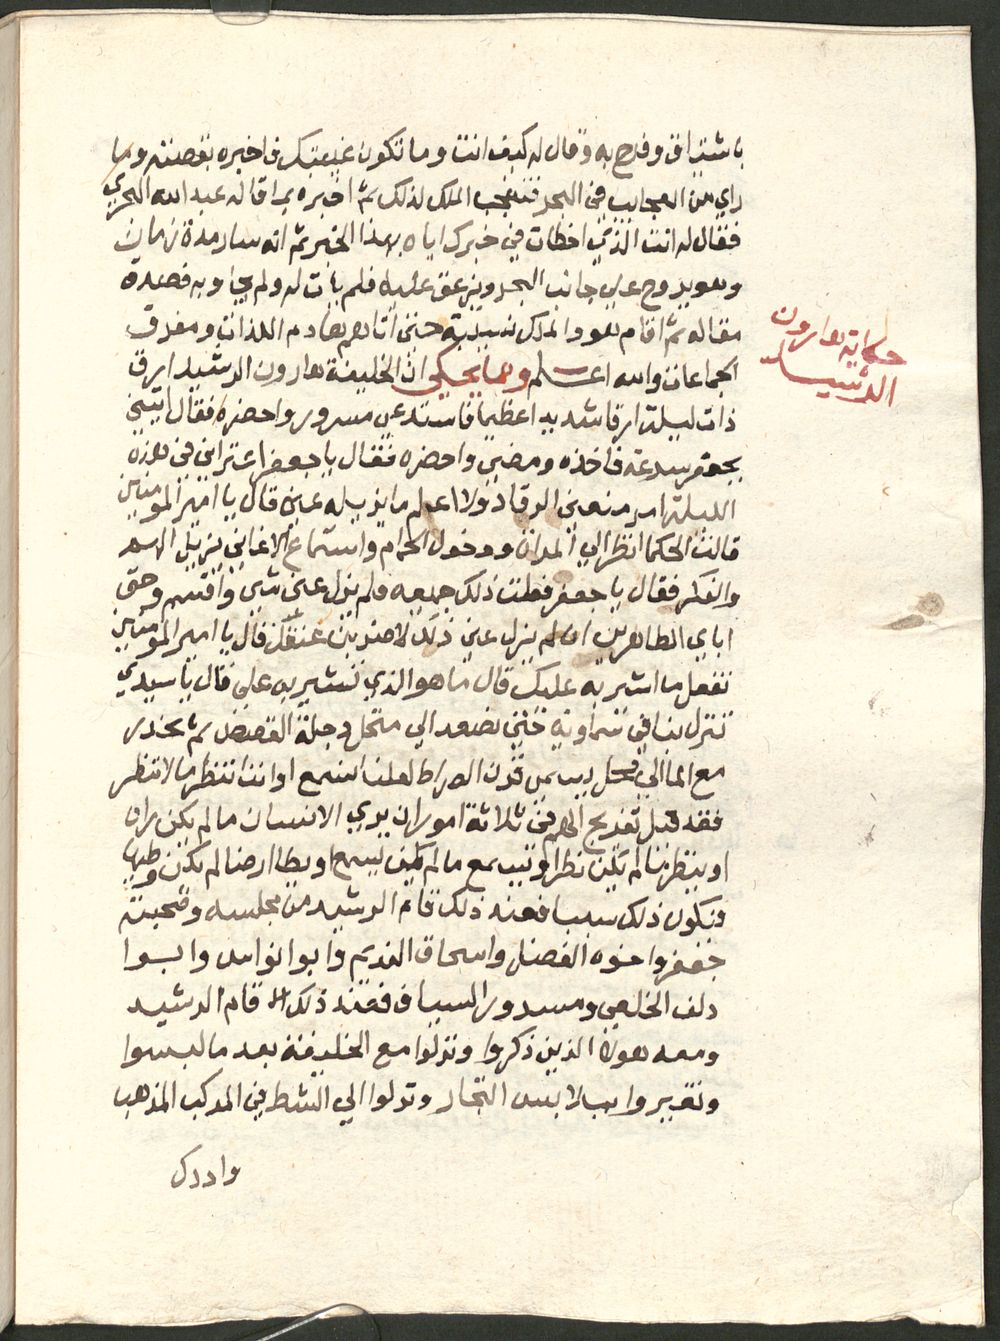 باشتياق وفرح به وقال له كيف انت وما تكون غيبتك فاخبره بقصته وما
راي من العجايب في البحر فتعجب الملك لذلك ثم اخبره بما قاله عبد الله البحري
فقال له انت الذي اخطات في خبرك اياه بهذا الخبر ثم انه سار مدة زمان
وهو يروح علي جانب البحر ويزعق عليه فلم يات له ولم يجاوبه فصعده
مقاله ثم اقام هو والملك نسيبه حتي اتاهم هادم اللذات ومفرق
الجماعات والله اعلم ومما يحكي ان الخليفة هارون الرشيد ارق
حكاية هارون
الرشيد
ذات ليلة ارقا شديدا عظيما فاستدعي مسرور واحضره فقال ايتيني
بجعفر بسرعة فاخذه ومضي واحضره فقال يا جعفر اعتراني في هذه
الليلة امر منعني الرقاد ولا اعلم ما يزيله عني قال يا امير المومنين
قالت الحكما انظر الي المراة ودخول الحمام واستماع الاغاني يزيل الهم
والفكر فقال يا جعفر فعلت ذلك جميعه فلم يزل عني شي واقسم وحق
اباي الطاهرين ان لم يزل عني ذلك لاضربن عنقك قال يا امير المومنين
تفعل ما اشير به عليك قال ما هو الذي تشير به علي قال يا سيدي
تنزل بنا في سماوية حتي نصعد الي محل دجلة القصص ثم نحدر
مع الما الي محل يسمي قرن الصراط لعلنا نسمع او اننا ننظر ما لا ننظر
فقد قيل تفريج الهم في ثلاثة امور ان يري الانسان ما لم يكن راه
او ينظر ما لم يكن نظر او يسمع ما لم يكن يسمع او يطا ارضا لم يكن وطيها
ويكون ذلك سببا فعند ذلك قام الرشيد من مجلسه وصحبته
جعفر واخوه الفضل واسحاق النديم وابوا نواس وابوا
دلف الخلعي ومسرور السياف فعند ذلك قام الرشيد
ومعه هولا الذين ذكروا ونزلوا مع الخليفة بعد ما لبسوا
وتغيروا بملابس التجار ونزلوا الي الشط في المركب المذهب
وادرك